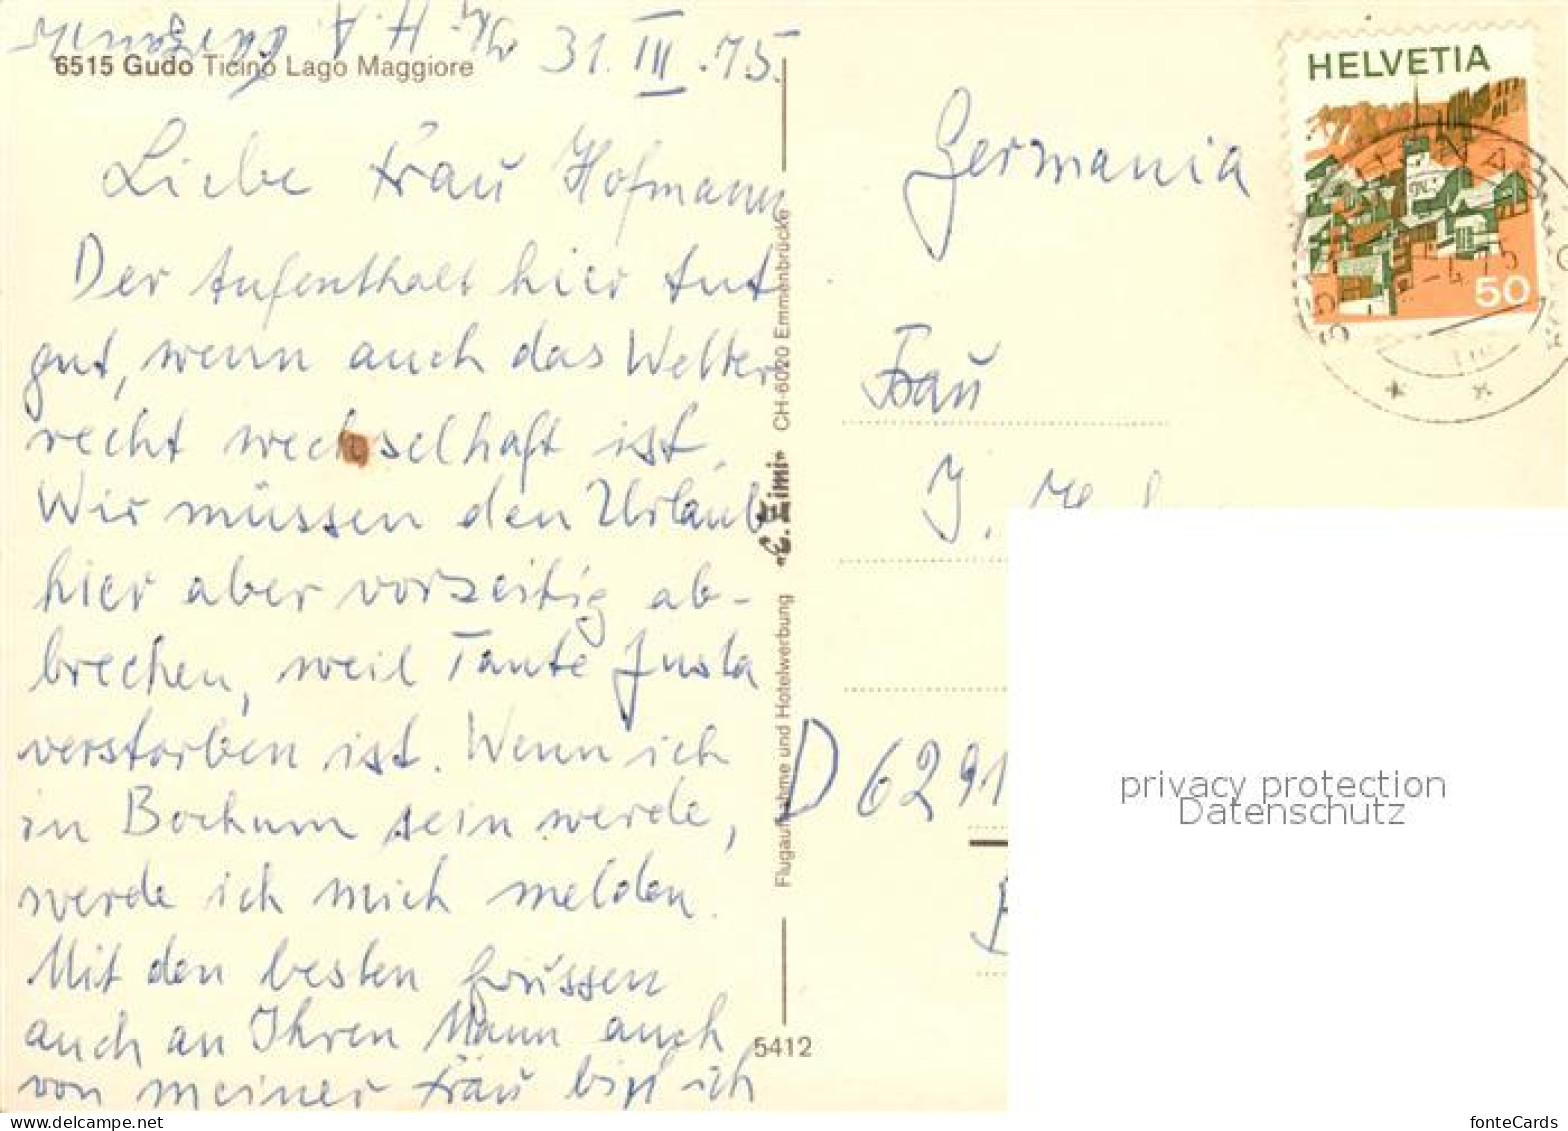 31. III .75.
6515 Gudo Ticino Lago Maggiore
Liebe Frau Hofmann
Der Aufenthalt hier tut
gut, wenn auch das Wetter
recht wechselhaft ist.
Wir müssen den Urlaub
hier aber vorzeitig ab-
brechen, weil Tante Justa
verstorben ist. Wenn ich
in Bochum sein werde,
werde ich mich melden.
Mit den besten Grüssen
auch an Ihren Mann auch
von meiner Frau bin ich
Flugaufnahme und Hotelwerbung
CH-6020 Emmenbrücke
5412
HELVETIA
50
Germania
Frau
J.
D 6291
privacy protection
Datenschutz
www.delcampe.net
fonteCards